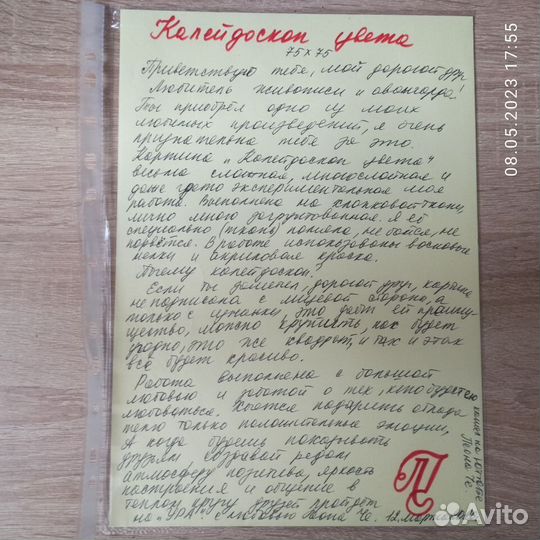 Калейдоскоп цвета
75х75
Приветствую тебя, мой дорогой друг
Любитель живописи и авангарда!
Ты приобрёл одно из моих
любимых произведений, я очень
признательна тебе за это.
Картина "Калейдоскоп цвета"
весьма сложная, многослойная и
даже где-то экспериментальная моя
работа. Выполнена на хлопковой ткани,
лично мною загрунтованная. Я её
специально (ткань) помяла, не бойся, не
порвётся. В работе использованы восковые
мелки и акриловая краска.
Почему калейдоскоп?
Если ты заметил, дорогой друг, картина
не подписана с лицевой стороны, а
только с изнанки, это даёт ей преиму
щество, можно крутить, как будет
угодно, это же квадрат, и так и этак
всё будет красиво.
Работа выполнена с большой
любовью и заботой о тех, кто будет ею
любоваться. Хочется подарить отсюда
тепло только положительные эмоции,
А когда будешь показывать
друзьям создавай рядом
атмосферу позитива, яркость
настроения и общение в
тёплом кругу друзей пройдёт
на "УРА". С любовью Иона Че. 12 марта
08.05.2023 17:55
Avito